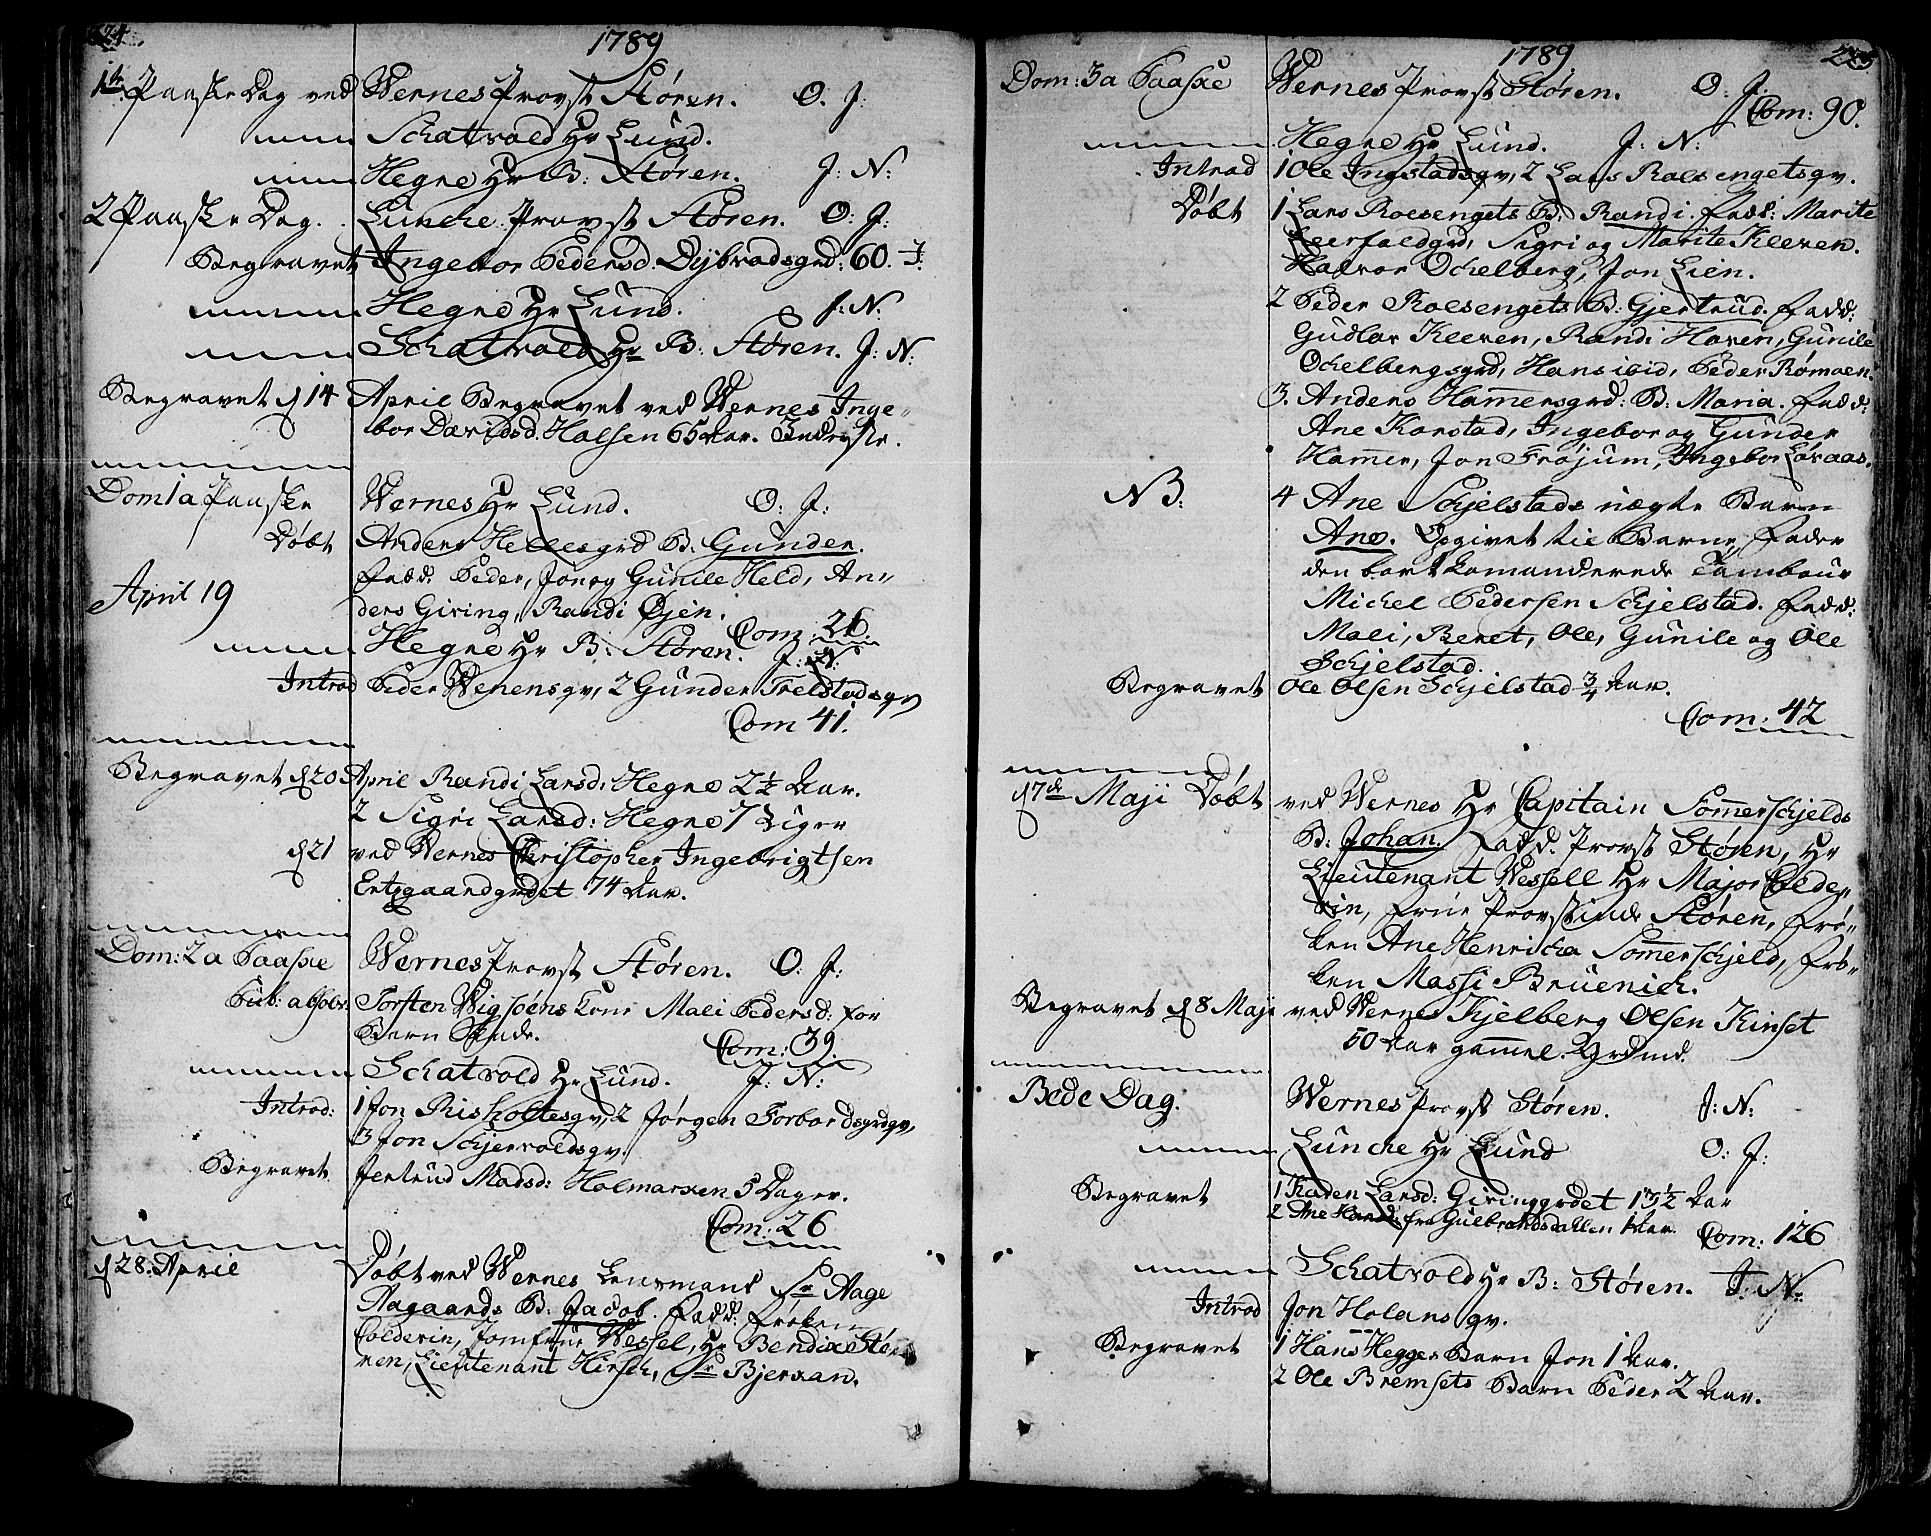 224.
1789
1te Paaske Dag ved Wernes Provst Støren. O. J:
Schatvold Hr Lund.
Hegne Hr B: Støren. J: N:
2 Paaske Dag. Lunche Provst Støren. O: J:
Begravet Ingebor Pedersd. Dybvadsgrd: 60.
Hegne Hr Lund. J: N:
Schatvold Hr B: Støren. J: N:
Begravet d 14 April Begravet ved Wernes Inge-
bor Davidsd. Halsen 65 Aar. Inderste.
Dom 1 a Paaske Wernes Hr Lund. O: J:
Døbt Anders Hellesgrd B: Gunder.
Fadd. Peder, Jon og Gunile Held, An-
April 19
ders Giving, Randi Øjen.
Com: 26.
Hegne Hr B: Støren. J: N:
Introd Peder Wenensgv, 2 Gunder Frelstadsgv
Com 41.
Begravet d 20 April Randi Larsd: Hegne 2½ Aar.
2 Sigri Larsd: Hegne 7 Uger
d 21 ved Wernes Christopher Ingebrigtsen
Ertzgaardgrdet 74 Aar.
Dom: 2 a Paaske Wernes Provst Støren. O: J:
Pub: absolv: Torsten Wigsøens Kone Mali Pedersd: for
Barn Qvæle.
Com: 39.
Schatvold Hr Lund. J: N:
Introd: 1 Jon Risholtesgv, 2 Jørgen Forbordsgrdgv,
3 Jon Schjervoldsgv.
Begravet Jertrud Madsd: Holmarken 5 Dager.
Com: 26
d 28. April Døbt ved Wernes Lensmand Sr Aage
Aagaards B: Jacob. Fadd: Frøken
Colderin, Jomfrue Wessel, Hr Bendix Stø-
ren, Lieutenant Hirsch, Sr Bjerkan.
225
1789
Dom: 3 a Paaske Wernes Provst Støren. O. J.
Com: 90.
Hegne Hr Lund. J: N:
Introd 1 Ole Ingstadsgv, 2 Lars Roesengetsgv.
Døbt 1 Lars Roesengets B: Randi. Fadd: Marite
Leerfaldgrd, Sigri og Marite Kleven.
Halvor Ochelberg, Jon Lien.
2 Peder Roesengets B: Gjertrud. Fadd:
Gudlov Kleven, Randi Haven, Gunile
Ochelbergsgrd, Hans ibid, Peder Rømoen.
3. Anders Hamersgrd: B: Maria. Fadd:
Ane Karstad, Ingebor og Gunder
Hamer, Jon Frøjum, Ingebor Løvaas.
NB: 4 Ane Schjelstads uægte Barn
Ane. Opgivet til Barne Fader
den bortkomanderede Tambour
Michel Pedersen Schjelstad. Fadd:
Mali, Beret, Ole, Gunile og Ole
Schjelstad.
Begravet Ole Olsen Schjelstad ¾ Aar.
Com: 42
d 7de Maji Døbt ved Wernes Hr Capitain Somerschjelds
B: Johan. Fadd. Provst Støren, Hr
Lieutenant Wessell Hr Major Colde-
vin, Frue Provstinde Støren, Frø-
ken Ane Henricha Somerschjeld, Frø-
ken Massi Bruenich.
Begravet d 8 Maji ved Wernes Kjelberg Olsen Kinset
50 Aar gamel. Grdmd.
Bede Dag. Wernes Provst Støren. J: N:
Lunche Hr Lund O: J:
Begravet 1 Karen Larsd: Givinggrdet 13½ Aar
2 Ane fra Gulbrandsdallen 1 Aar. Com: 126
Schatvold Hr B: Støren. J: N:
Introd Jon Holansgv.
Begravet 1 Hans Hegges Barn Jon 1 Aar.
2 Ole Bremsets Barn Peder 2 Aar.